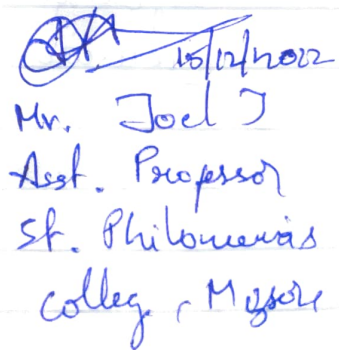 15/12/2022
Mr. Joel J
Asst. Professor
St. Philomena's
College, Mysore